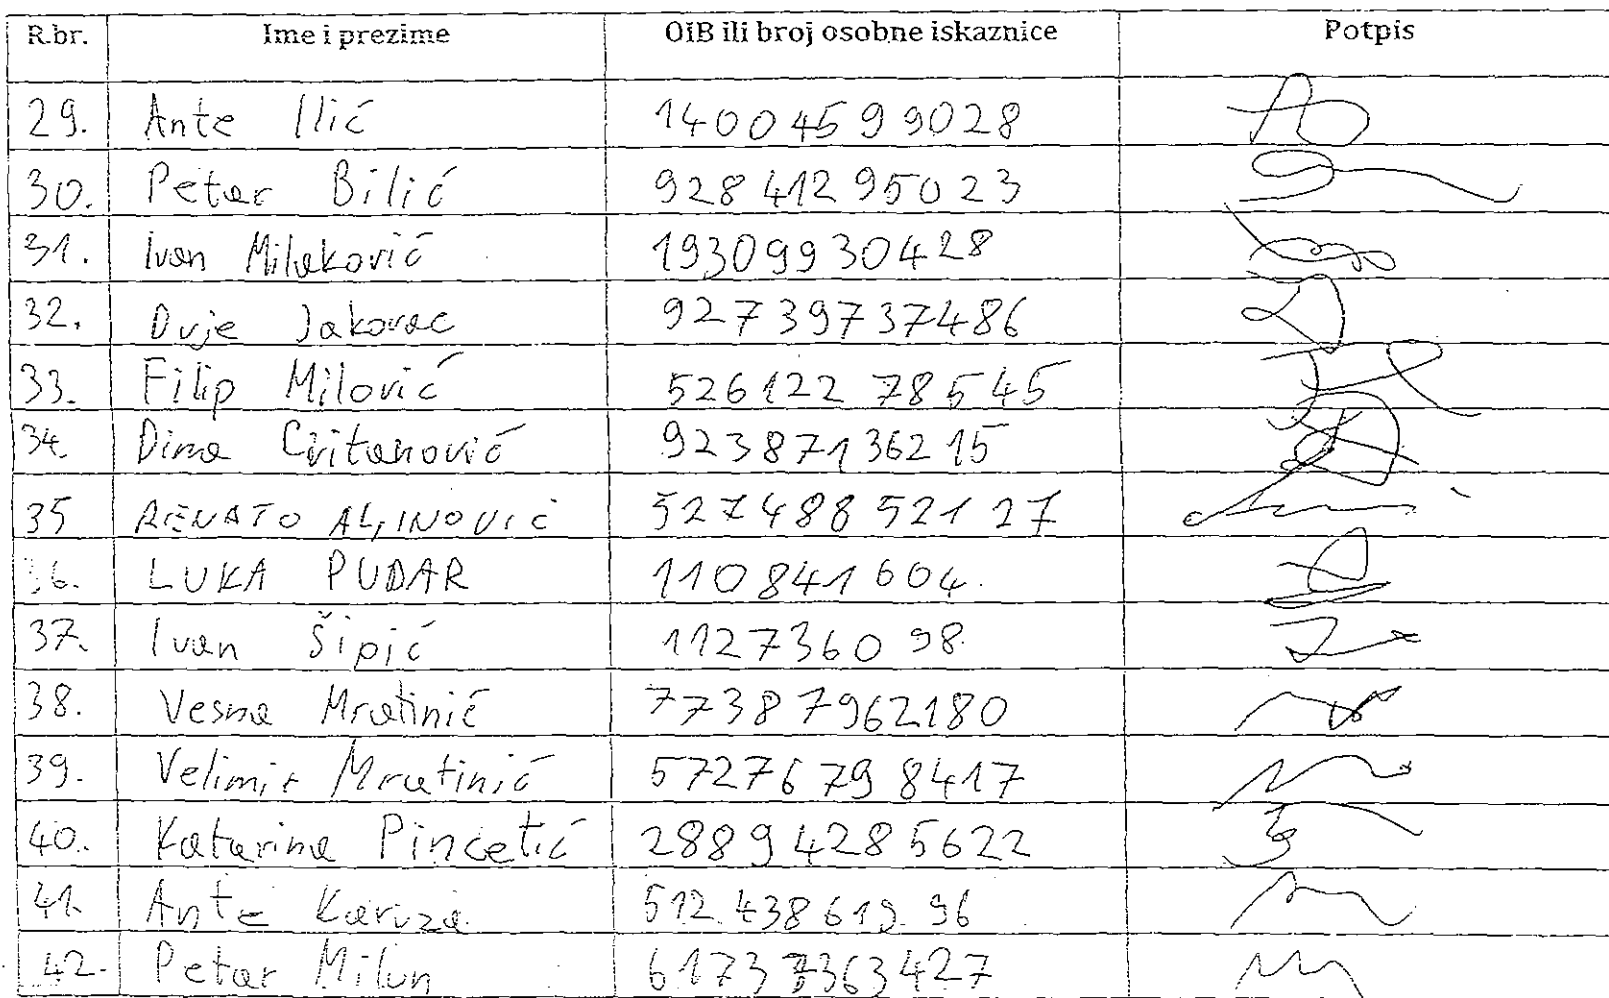 R.br. Ime i prezime OIB ili broj osobne iskaznice Potpis
29. Ante Ilić 14004599028
30. Petar Bilić 92841295023
31. Ivan Milaković 19309930428
32. Duje Jakovac 92739737486
33. Filip Milović 52612278545
34 Dina Cvitanović 92387136215
35 RENATO ALJINOVIĆ 52748852127
36. LUKA PUDAR 110841604.
37. Ivan Šipić 112736098.
38. Vesna Mratinić 77387962180
39. Velimir Mratinić 57276798417
40. Katarina Pincetić 28894285622
41. Ante 51243861996
42. Petar Milun 61737363427